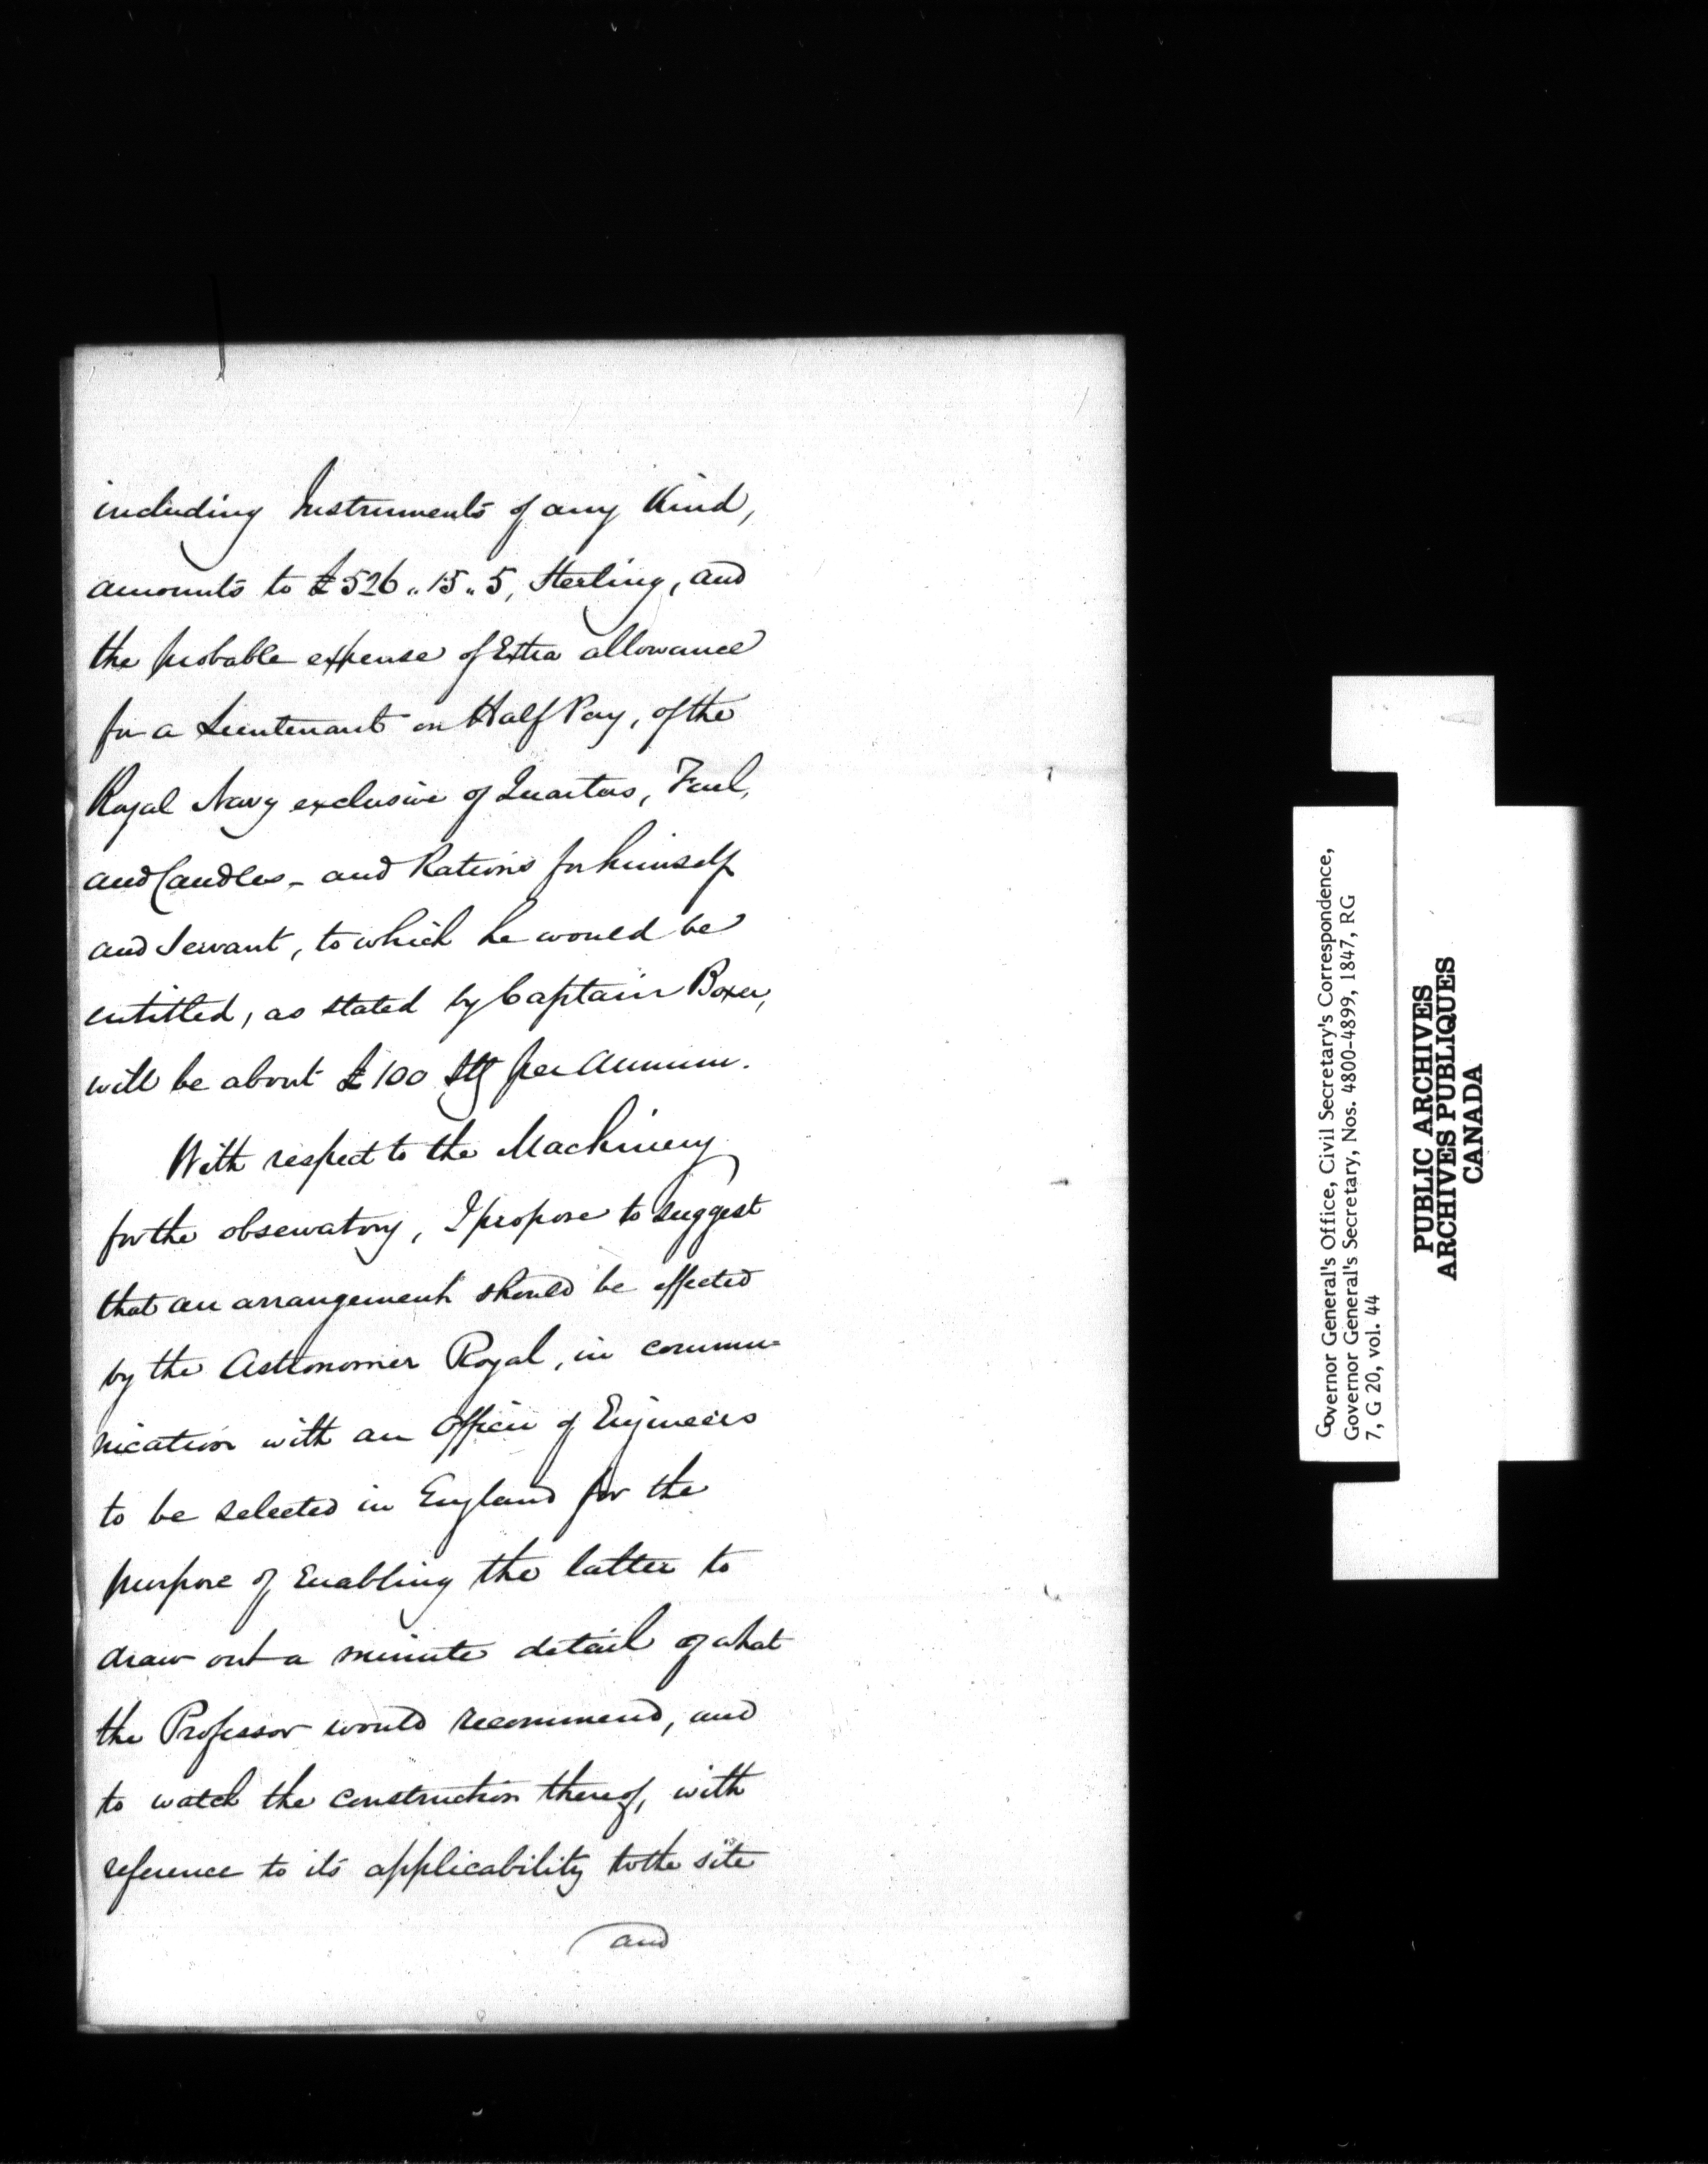 including Instruments of any Kind,
amounts to £526..15..5, Sterling, and
the probable expense of Extra allowance
for a Lieutenant on Half Pay, of the
Royal Navy exclusive of Quarters, Fuel,
and Candles - and Rations for himself
and Servant, to which he would be
entitled, as stated by Captain Boxer,
will be about £100 Stg per Annum.
With respect to the Machinery
for the observatory, I propose to suggest
that an arrangement should be effected
by the Astronomer Royal, in commu=
nication with an Officer of Engineers
to be selected in England for the
purpose of Enabling the latter to
draw out a minute detail of what
the Professor would recommend, and
to watch the construction thereof, with
reference to its applicability to the site
and
Governor General's Office, Civil Secretary's Correspondence,
Governor General's Secretary, Nos. 4800-4899, 1847, RG
7, G 20, vol. 44
PUBLIC ARCHIVES
ARCHIVES PUBLIQUES
CANADA